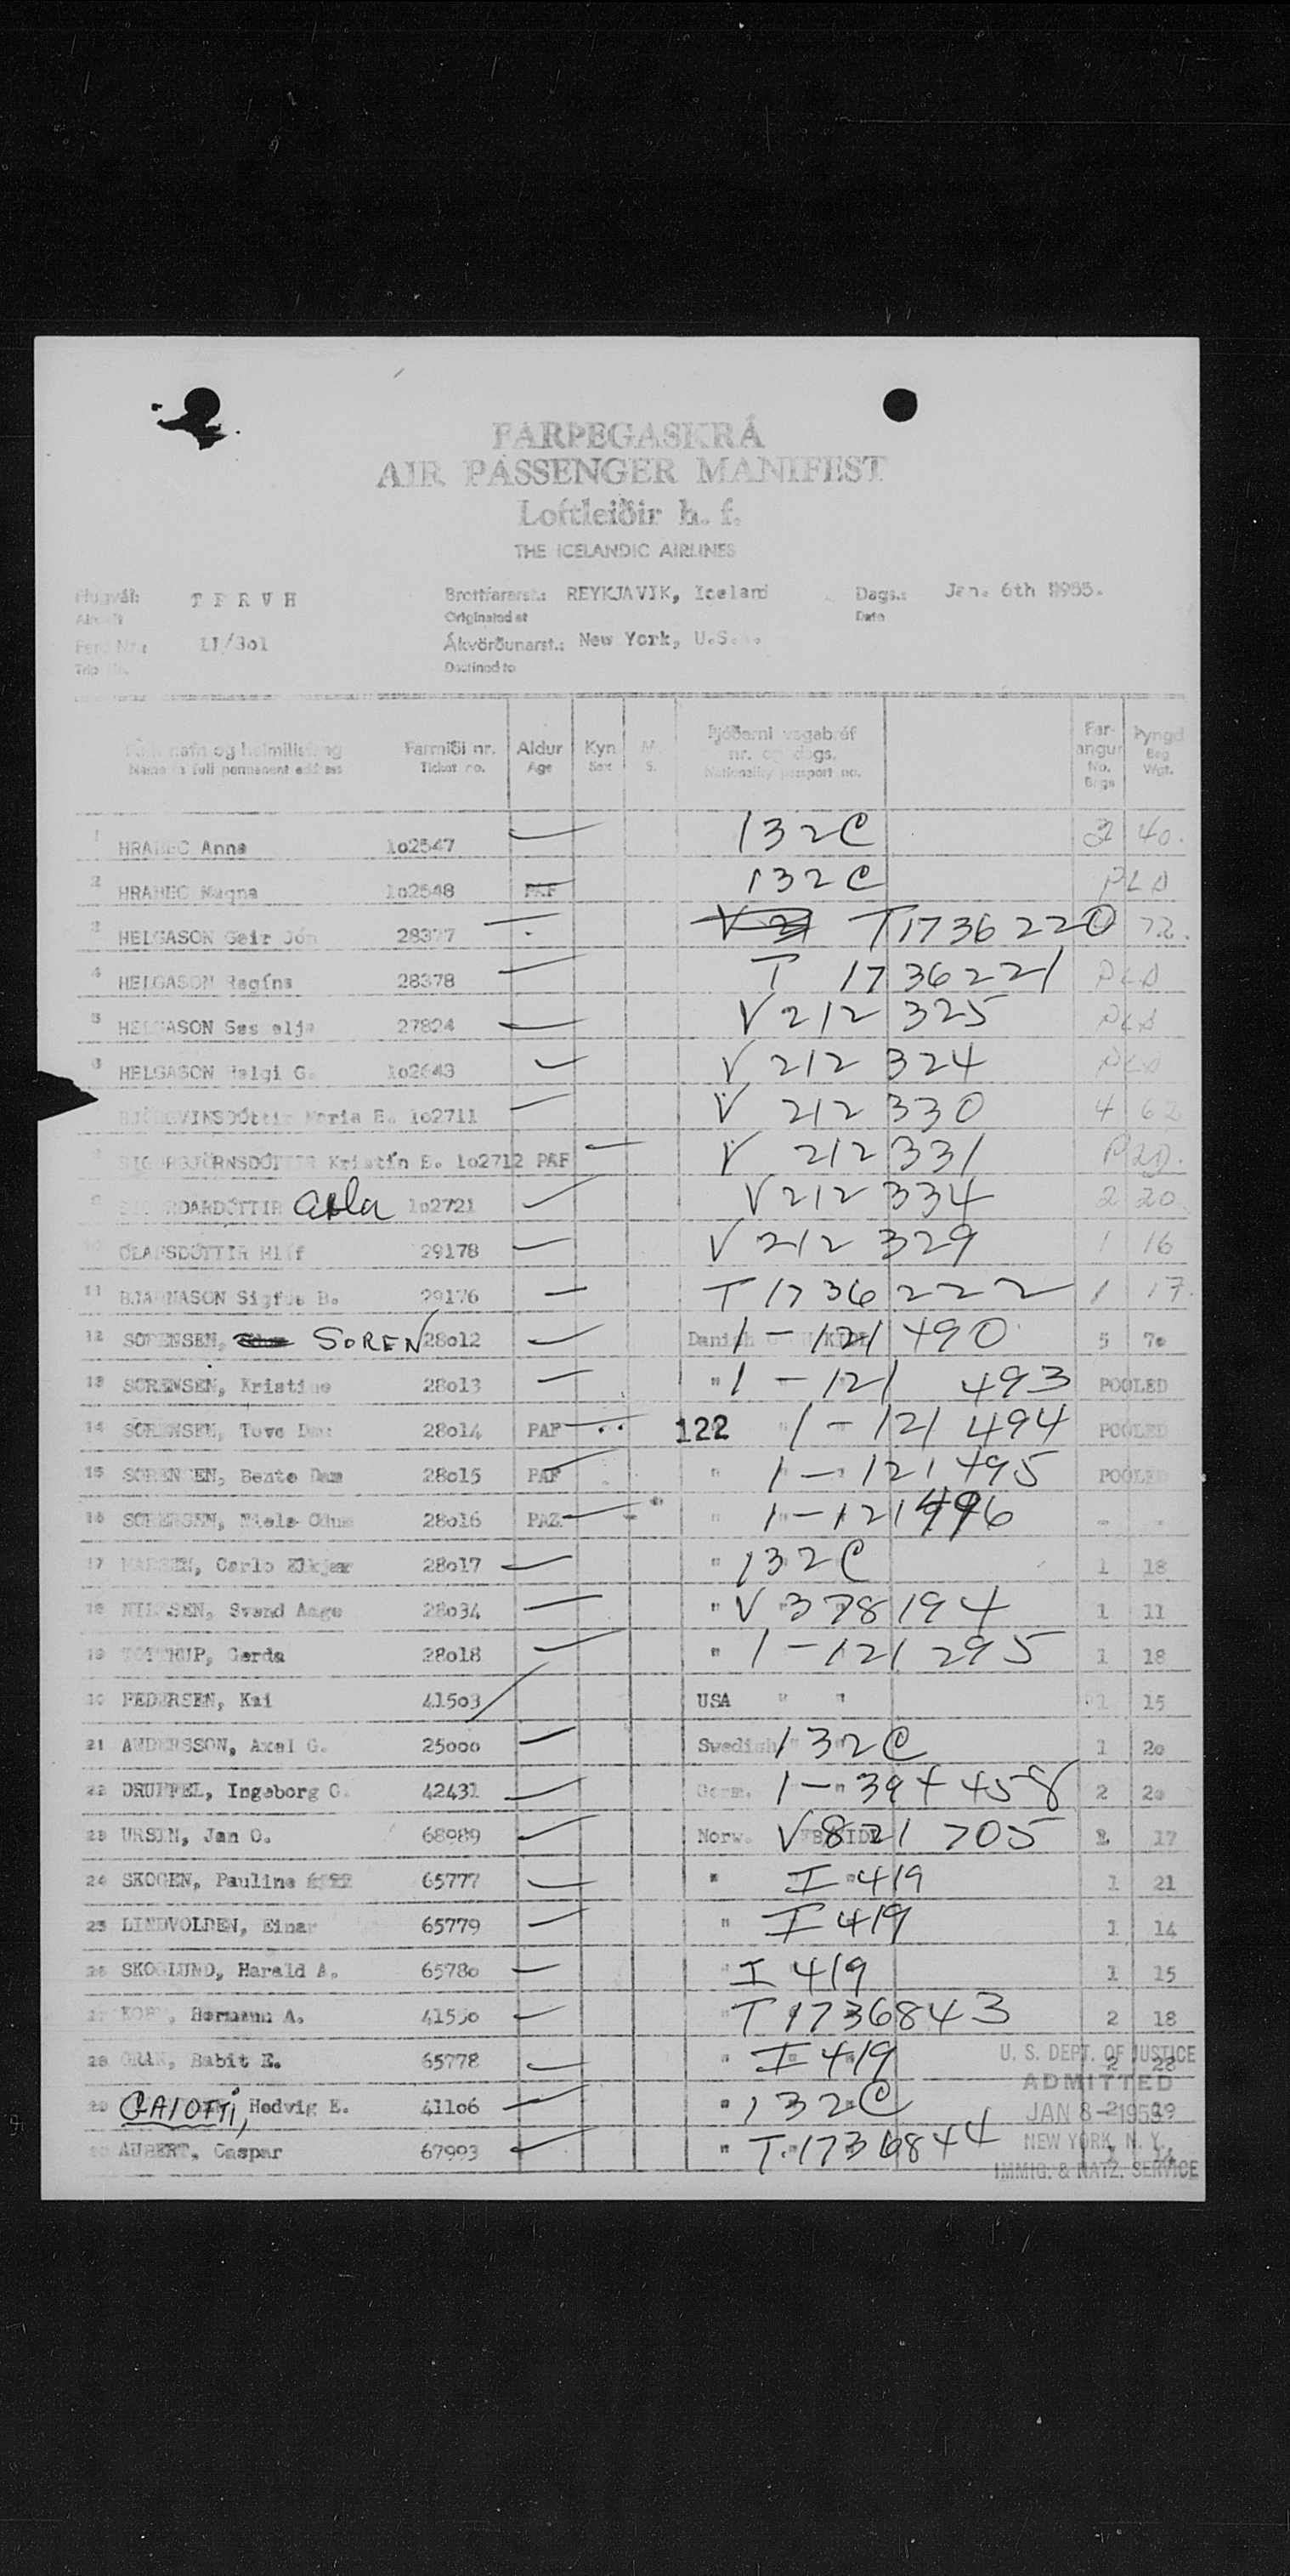 FARÞEGASKRÁ
AIR PASSENGER MANIFEST
Loftleiðir h. f.
THE ICELANDIC AIRLINES
Flugvél: T F R V H Brottfararst.: REYKJAVIK, Iceland Dags.: Jan. 6th 1955.
Originated at Date
Ferð Nr.: LI/3o1 Ákvörðunarst.: New York, U.S.A.
Trip No. Destined to
og heimilisfang Farmiði nr. Aldur Kyn M. Þjóðerni vegabréf Far- Þyngd
Name in full permanent address Ticket no. Age Sex S. nr. og dags. angur Bag
Nationality passport no. No. Wgt.
Bags
1 HRABEC Anna 1o2547 132C 40.
2 HRABEC Magna 1o2548 PAF 132C PLD
3 HELGASON Geir Jón 28377 T1736220 72.
4 HELGASON Regína 28378 T 1736221 PLD
5 HELGASON 27824 V 212 325 PLD
6 HELGASON Helgi G. 1o2643 V 212 324 PLD
BJÖRGVINSDÓttir Maria E. 1o2711 V 212 330 4 62
SIGURBJÖRNSDÓTTIR Kristín B. 1o2712 PAF V 212 331
9 1o2721 V 212 334 2 20
ÓLAFSDÓTTIR Hlíf 29178 V 212 329 1 16
11 BJARNASON Sigfús B. 29176 T 1736 222 1 17.
12 SORENSEN, SOREN 28o12 Danish 1 - 121 490 5 7o
13 SORENSEN, Kristine 28o13 " 1 - 121 493 POOLED
14 SORENSEN, Tove Dam 28o14 PAF 122 " 1 - 121 494 POOLED
15 SORENSEN, Bente Dam 28o15 PAF " 1 - 121 495 POOLED
16 SORENSEN, Niels Odum 28o16 PAZ " 1 - 121 496 - -
17 Carlo Elkjær 28o17 " 132C 1 18
18 NIELSEN, Svend Aage 28o34 " V 378 194 1 11
19 TOTTRUP, Gerda 28o18 " 1 - 121 295 1 18
PEDERSEN, Kai 415o3 USA " " 1 15
21 ANDERSSON, Axel G. 25ooo Swedish 132C 1 2o
22 DRUFFEL, Ingeborg G. 42431 Germ. 1 - 394 458 2 2o
23 URSIN, Jan O. 68989 Norw. V 821 705 17
24 SKOGEN, Pauline 65777 " I 419 1 21
25 LINDVOLDEN, Einar 65779 " I 419 1 14
26 SKOGLUND, Harald A. 6578o " I 419 1 15
Hermann A. 4155o " T 1736843 2 18
28 Babit E. 65778 " I 419 2 28
Hedvig E. 411o6 " 132C 2 19
AUBERT, Caspar 67993 " T.1736844 14
U. S. DEPT. OF JUSTICE
ADMITTED
JAN 8 - 1955
NEW YORK, N. Y.
IMMIG. & NATZ. SERVICE